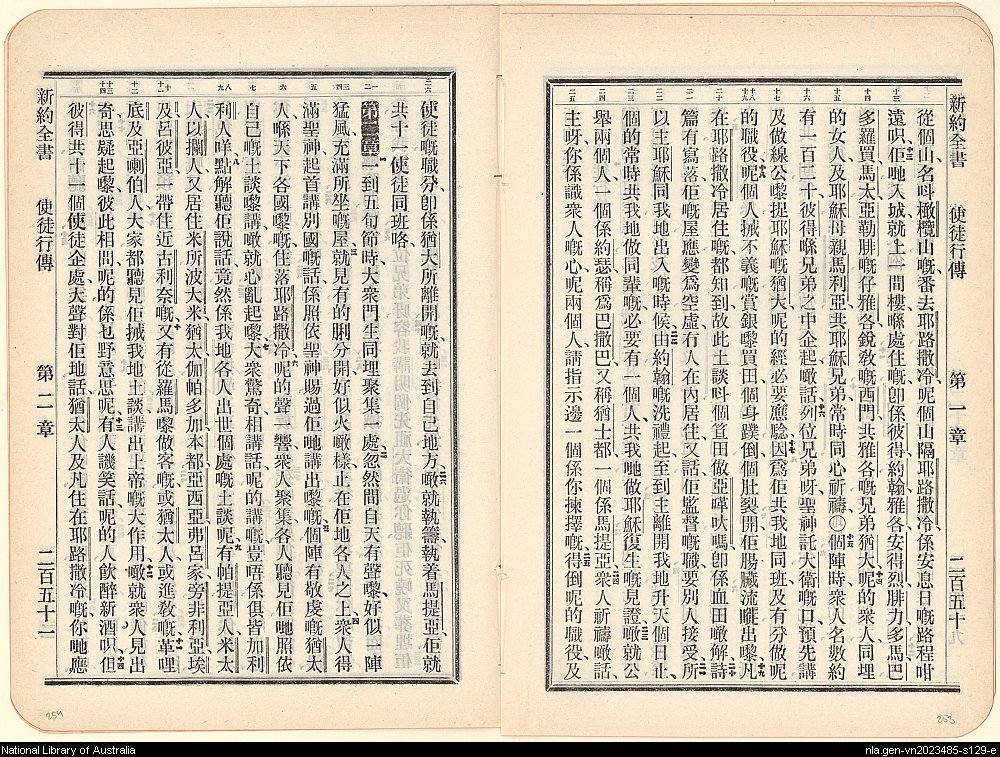 新約全書　使徒行傳　第一章　二百五十九
從個山名呌橄欖山嘅番去耶路撒冷呢個山隔耶路撒冷係安息日嘅路程咁
遠呮佢哋入城就上一間樓喺處住嘅卽係彼得約翰雅各安得烈腓力多馬巴
多羅買馬太亞勒腓嘅仔雅各銳敎嘅西門共雅各嘅兄弟猶大呢的衆人同埋
的女人及耶穌母親馬利亞共耶穌兄弟常時同心祈禱個陣時衆人名數約
有一百二十彼得喺兄弟之中企起噉話列位兄弟呀聖神託大衛嘅口預先講
及做線公嚟捉耶穌嘅猶大呢的經必要應騐因爲佢共我地同班及有分做呢
的職役呢個人揻不義嘅賞銀嚟買田個身蹼倒個肚裂開佢腸臟流曬出嚟凡
在耶路撒冷居住嘅都知到故此土談呌個笪田做亞嗶吠嗎卽係血田噉解詩
篇有寫落佢嘅屋應變爲空虛有人在內居住又話佢監督嘅職要別人接受所
以主耶穌同我地出入嘅時候由約翰嘅洗禮起至到主離開我地升天個日止
個的常時共我地做同輩嘅必要有一個人共我哋做耶穌復生嘅見證噉就公
舉兩個人一個係約瑟稱爲巴撒巴又稱猶士都一個係馬提亞衆人祈禱噉話
主呀你係識衆人嘅心呢兩個人請指示邊一個係你揀擇嘅得倒呢的職役及
使徒嘅職分卽係猶大所離開嘅就去到自己地方噉就執籌執着馬提亞佢就
共十一使徒同班咯
第二章一到五旬節時大衆門生同埋聚集一處忽然間自天有聲嚟好似一陣
猛風充滿所坐嘅屋就見有的脷分開好似火噉樣止在佢地各人之上衆人得
滿聖神起首講別國嘅話係照依聖神賜過佢哋講出嚟嘅個陣有敬虔嘅猶太
人喺天下各國嚟嘅住落耶路撒冷呢的聲一響衆人聚集各人聽見佢哋照依
自己嘅土談嚟講噉就心亂起嚟大衆驚奇相講話呢的講嘅豈唔係俱皆加利
利人咩點解聽佢說話竟然係我地各人出世個處嘅土談呢有帕提亞人米太
人以攔人又居住米所波大米猶太伽帕多加本都亞西亞弗呂家旁非利亞埃
及呂彼亞一帶住近古利奈嘅又有從羅馬嚟做客嘅或猶太人或進敎嘅革哩
底及亞喇伯人大家都聽見佢揻我地土談講出上帝嘅大作用噉就衆人見出
奇思疑起嚟彼此相問呢的係乜野意思呢有人譏笑話呢的人飲醉新酒呮但
彼得共十一個使徒企處大聲對佢地話猶太人及凡住在耶路撒冷嘅你哋應
新約全書　使徒行傳　第二章　二百五十二
253
254
National Library of Australia
nla.gen-vn2023485-s129-e